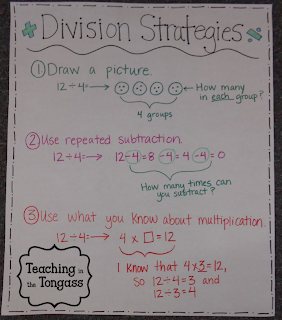 Division Strategies
① Draw a picture.
12÷4= → How many
in each group?
4 groups
② Use repeated subtraction.
12÷4= → 12-4=8-4=4-4=0
How many times can
you subtract?
③ Use what you know about multiplication.
12÷4= → 4 x □ = 12
I know that 4x3=12,
So 12÷4=3 and
12÷3=4
Teaching
in the
Tongass